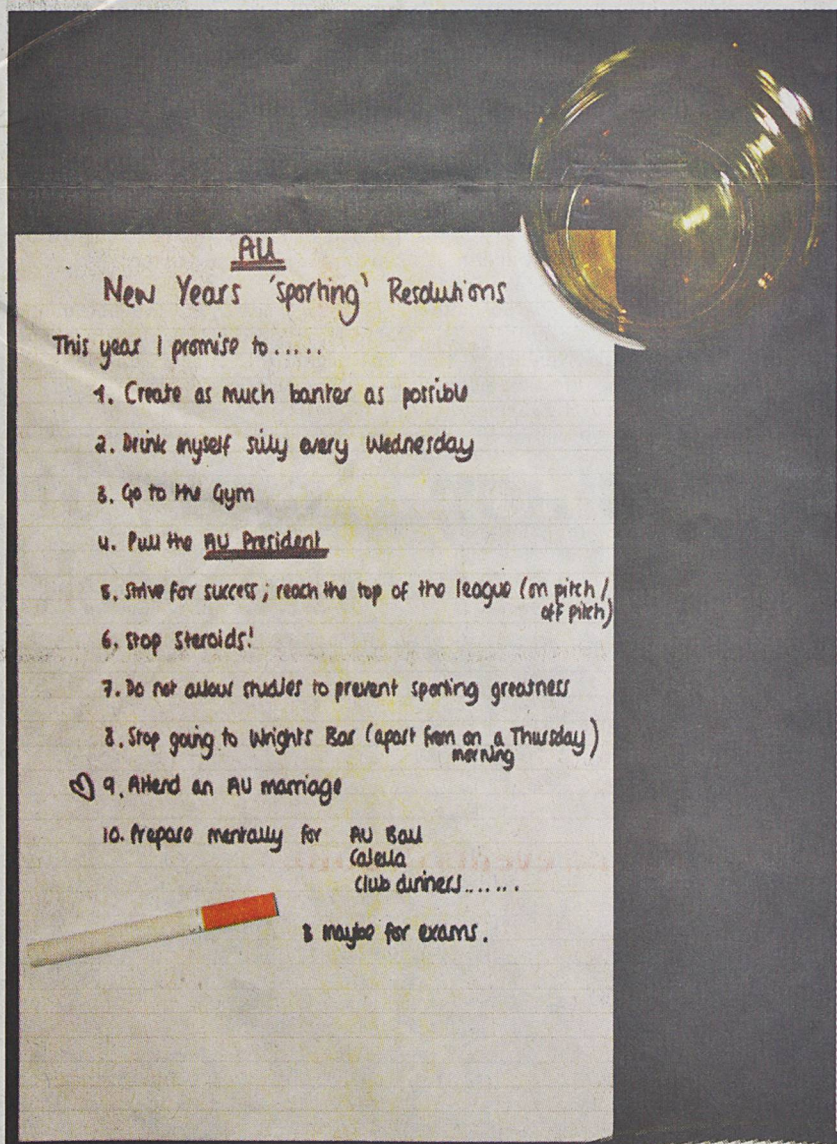 AU
New Years 'sporting' Resolutions
This year I promise to.....
1. Create as much banter as possible
2. Drink myself silly every Wednesday
3. Go to the Gym
4. Pull the AU President
5. Strive for success; reach the top of the league (on pitch/
off pitch)
6. Stop Steroids!
7. Do not allow studies to prevent sporting greatness
8. Stop going to Wrights Bar (apart from on a Thursday)
morning
9. Attend an AU marriage
10. Prepare mentally for AU Ball
Calella
club dinners.......
& maybe for exams.